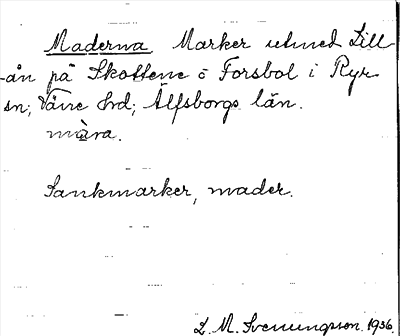 Maderna Marker utmed Lill-
-ån på Skottene o Forsbol i Ryr
sn; Väne hrd; Älfsborgs län.
màra.
Sankmarker, mader.
L. M. Svenungsson. 1936.